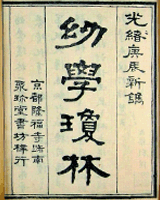 光緒庚辰新鐫
幼學瓊林
京都隆福寺路南
聚珍堂書坊梓行